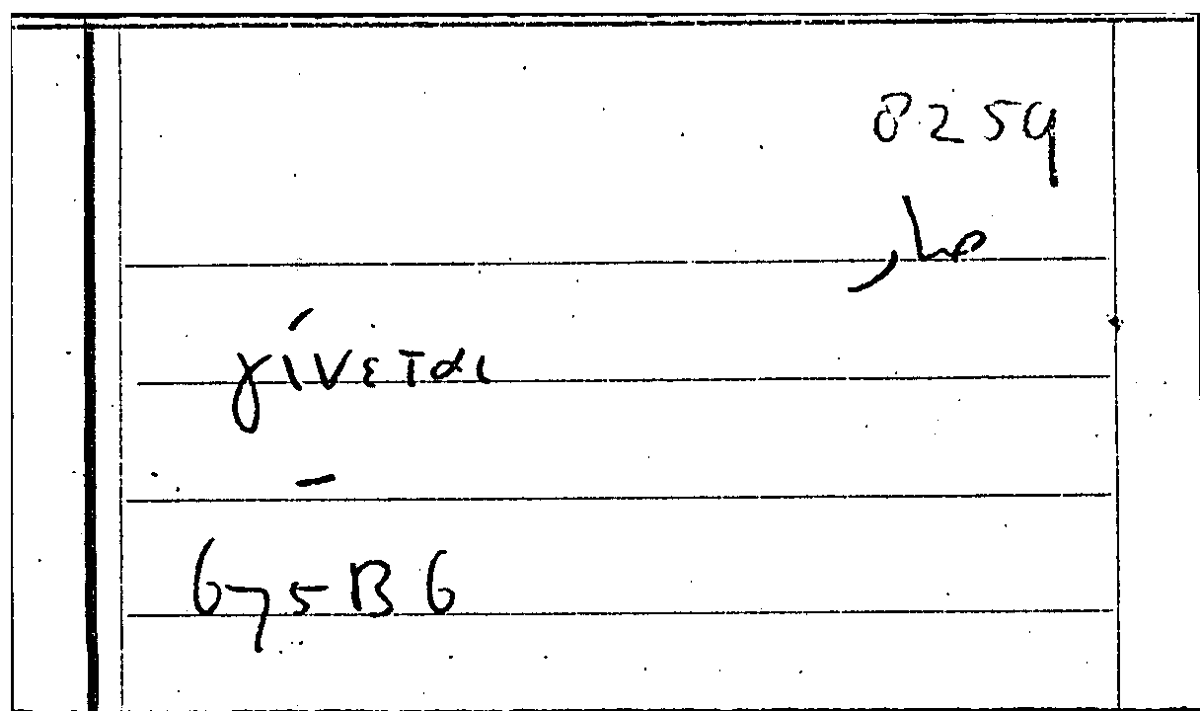 8259
γίνεται
–
675B6